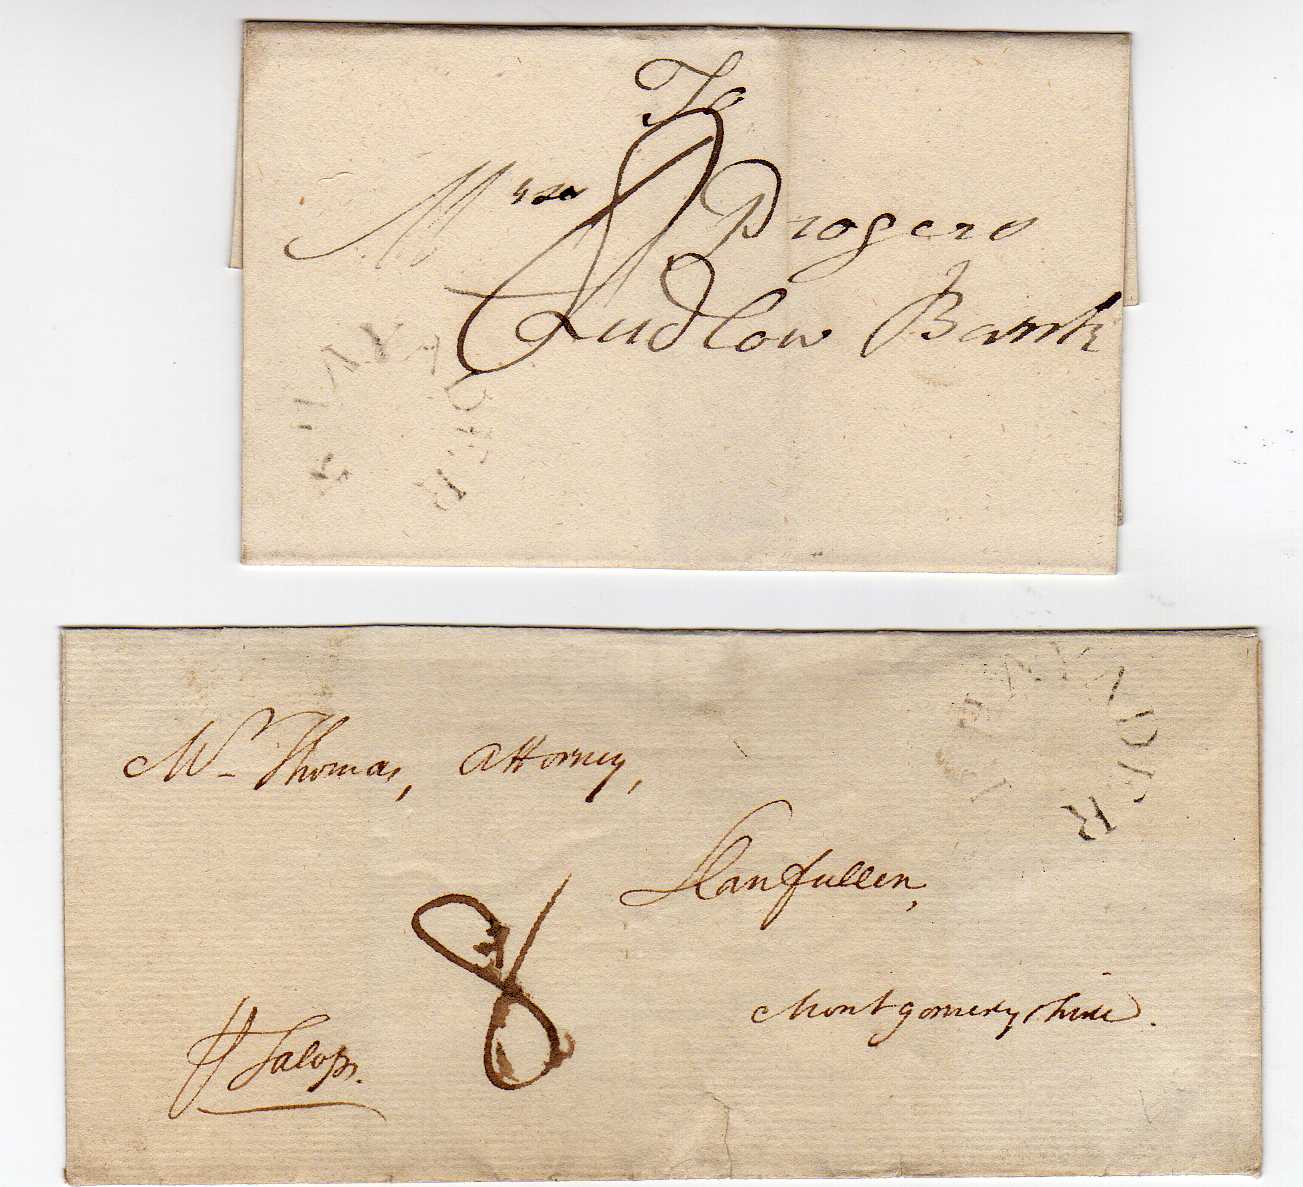 To
Mrs Progers
8
Ludlow Bank
Mr Thomas, Attorney,
Llanfullen,
8
Montgomeryshire.
Salop.